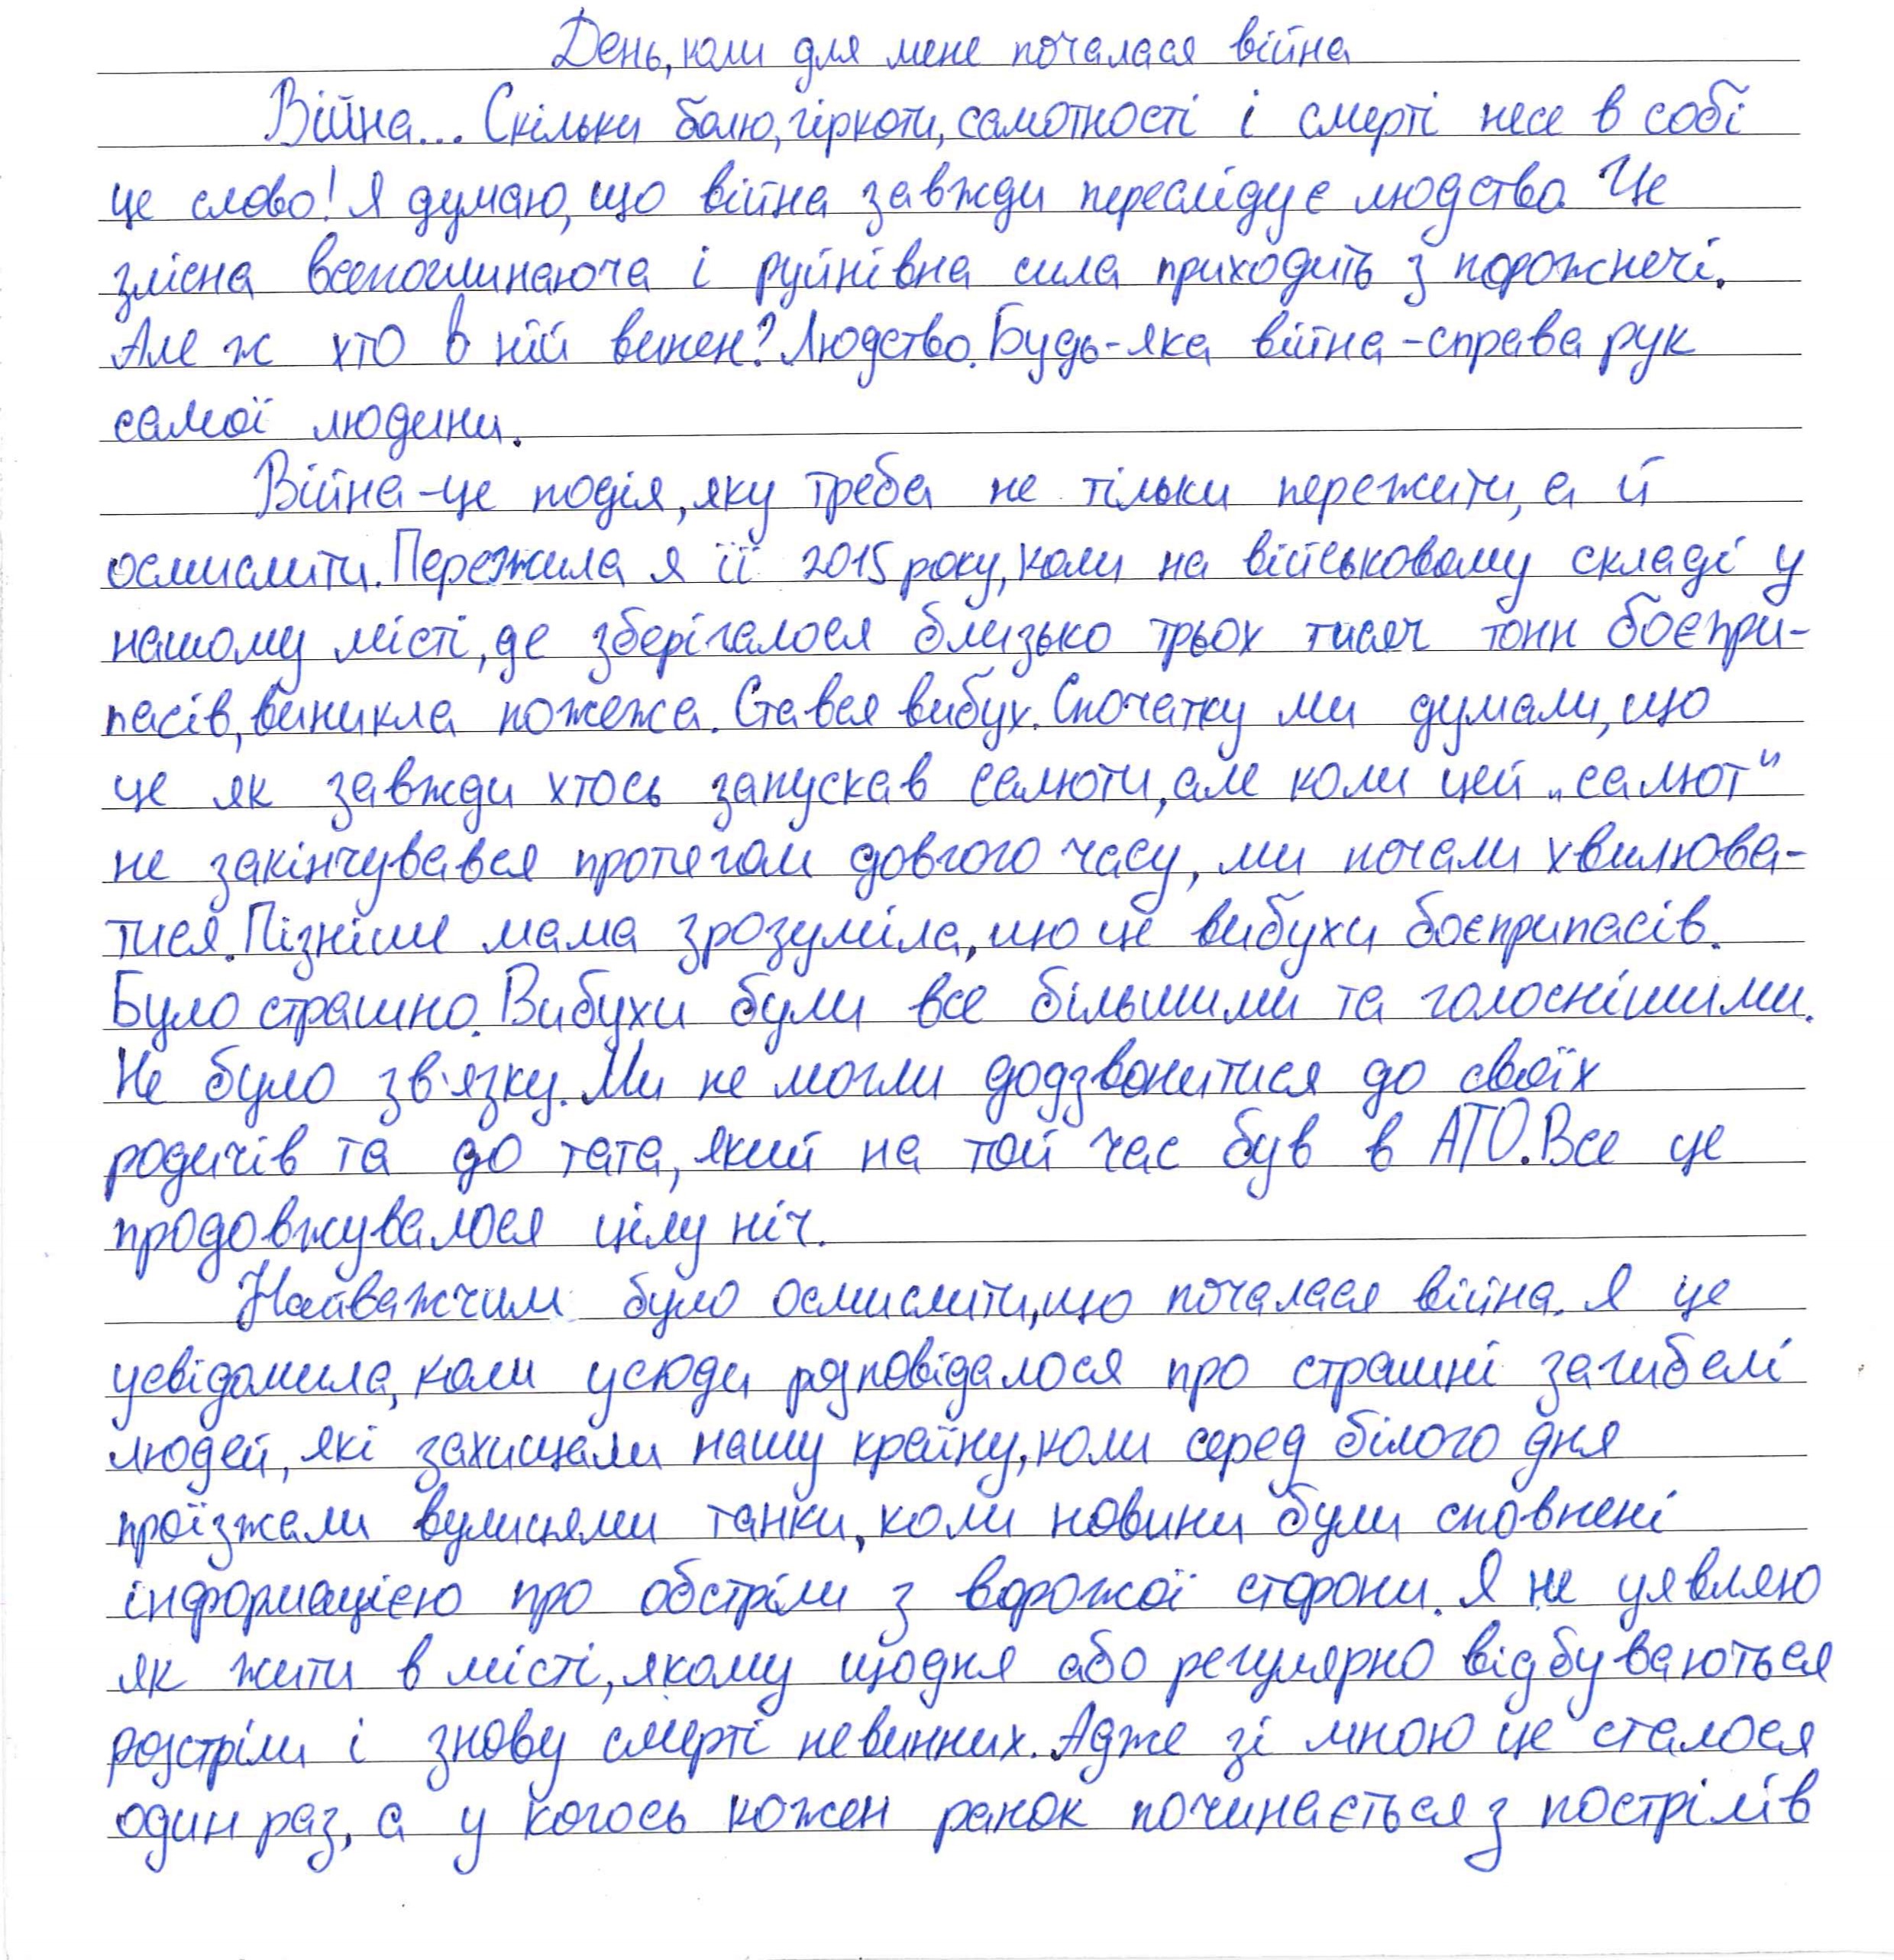 День, коли для мене почалася війна
Війна... Скільки болю, гіркоти, самотності і смерті несе в собі
це слово! Я думаю, що війна завжди переслідує людство. Це
злісна всепоглинаюча і руйнівна сила приходить з порожнечі.
Але ж хто в ній винен? Людство. Будь-яка війна - справа рук
самої людини.
Війна - це подія, яку треба не тільки пережити, а й
осмислити. Пережила я її 2015 року, коли на військовому складі у
нашому місті, де зберігалося близько трьох тисяч тонн боєпри-
пасів, виникла пожежа. Стався вибух. Спочатку ми думали, що
це як завжди хтось запускав салюти, але коли цей „салют"
не закінчувався протягом довгого часу, ми почали хвилюва-
тися. Пізніше мама зрозуміла, що це вибухи боєприпасів.
Було страшно. Вибухи були все більшими та голоснішими.
Не було зв'язку. Ми не могли додзвонитися до своїх
родичів та до тата, який на той час був в АТО. Все це
продовжувалося цілу ніч.
Найважчим було осмислити, що почалася війна. Я це
усвідомила, коли усюди розповідалося про страшні загибелі
людей, які захищали нашу країну, коли серед білого дня
проїзжали вулицями танки, коли новини були сповнені
інформацією про обстріли з ворожої сторони. Я не уявляю
як жити в місті, якому щодня або регулярно відбуваються
розстріли і знову смерті невинних. Адже зі мною це сталося
один раз, а у когось кожен ранок починається з пострілів